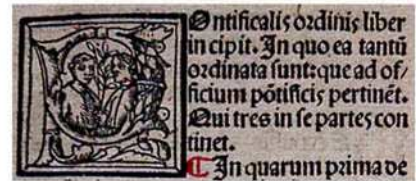 Pontificalis ordinis liber
incipit. In quo ea tantũ
ordinata sunt: que ad of⸗
ficium põtificis pertinẽt.
Qui tres in se partes con
tinet.
¶ In quarum prima de